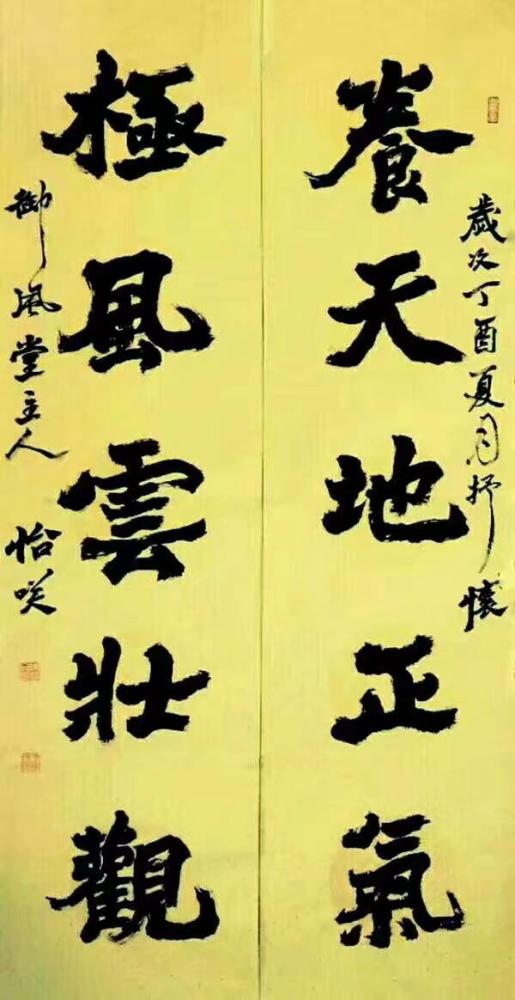 歲次丁酉夏月抒懷
養天地正氣
極風雲壯觀
御風堂主人
怡咲